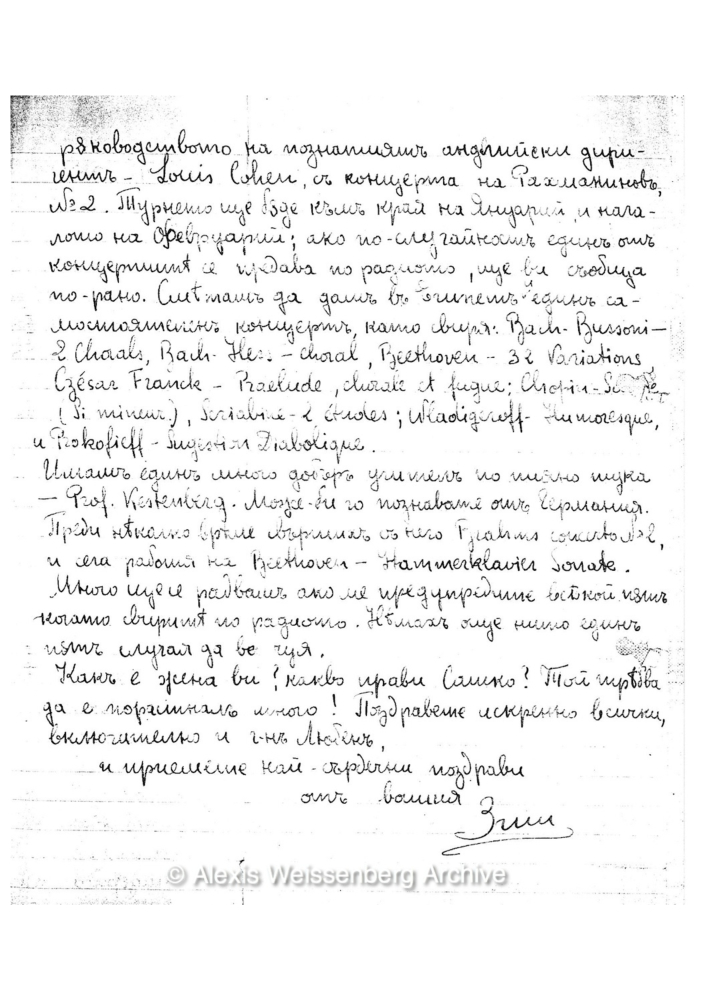 рѫководството на познатиятъ английски дири-
гентъ - Louis Cohen, съ концерта на Рахманиновъ,
№2. Турнето ще бѫде къмъ край на Януарий и нача-
лото на Февруарий; ако по-случайность единъ отъ
концертитѣ се предава по радиото, ще ви съобщя
по-рано. Смѣтамъ да дамъ въ Египетъ единъ са-
мостоятеленъ концертъ, като свиря: Bach-Bussoni -
2 Chorals, Bach-Hess - choral, Beethoven - 32 Variations
Czésar Franck - Praelude, chorale et fugue; Chopin -
(Si mineur), Scriabine - 2 études; Wladigeroff - Humoresque,
и Prokofieff - Sugestion Diabolique.
Имамъ единъ много добъръ учитель по пиано тука
- Prof. Kestenberg. Може-би го познавате отъ Германия.
Преди нѣколко врѣме свършихъ съ него Brahms concerto №2,
и сега работя на Beethoven - Hammerklavier Sonate.
Много ще се радвамъ ако ме предупредите всѣкой пѫть
когато свиритѣ по радиото. Нѣмахъ още нито единъ
пѫть случая да ве чуя.
Какъ е жена ви? какво прави Сашко? Той трѣбва
да е порастналъ много! Поздравете искренно всички,
включително и г-нъ Любенъ,
и приемете най-сърдечни поздрави
отъ вашия
Зиги
© Alexis Weissenberg Archive